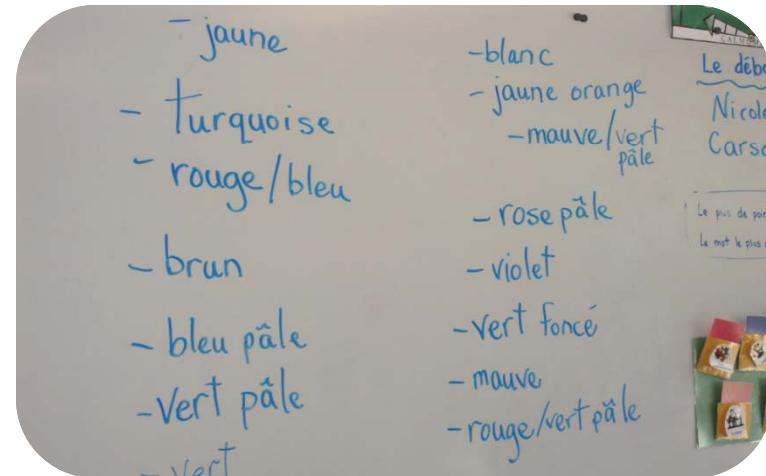 - jaune
- turquoise
- rouge/bleu
- brun
- bleu pâle
- vert pâle
- vert
- blanc
- jaune orange
- mauve/vert
pâle
- rose pâle
- violet
- vert foncé
- mauve
- rouge/vert pâle
Le
Le plus de
Le mot le plus